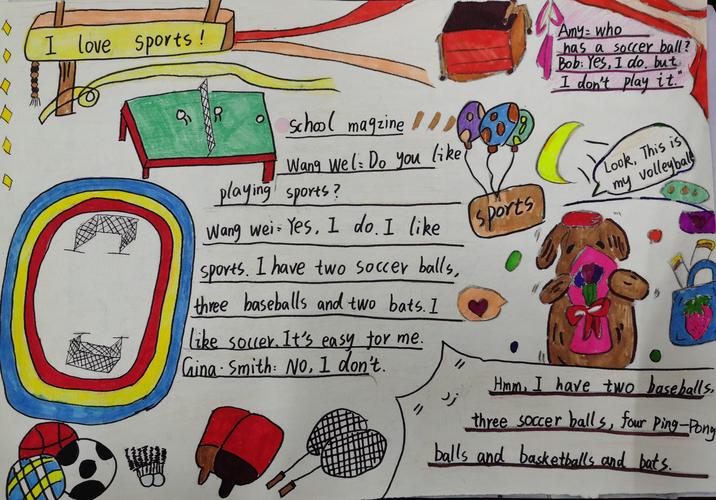 I love sports!
Amy: who
has a soccer ball?
Bob: Yes, I do. but
I don't play it."
school magzine
Wang Wei: Do you like
playing sports?
Wang wei: Yes, I do. I like
sports. I have two soccer balls,
three baseballs and two bats. I
like soccer. It's easy for me.
Gina·Smith: No, I don't.
sports
Look, This is
my volleyball
Hmm, I have two baseballs,
three soccer balls, four Ping-Pong
balls and basketballs and bats.